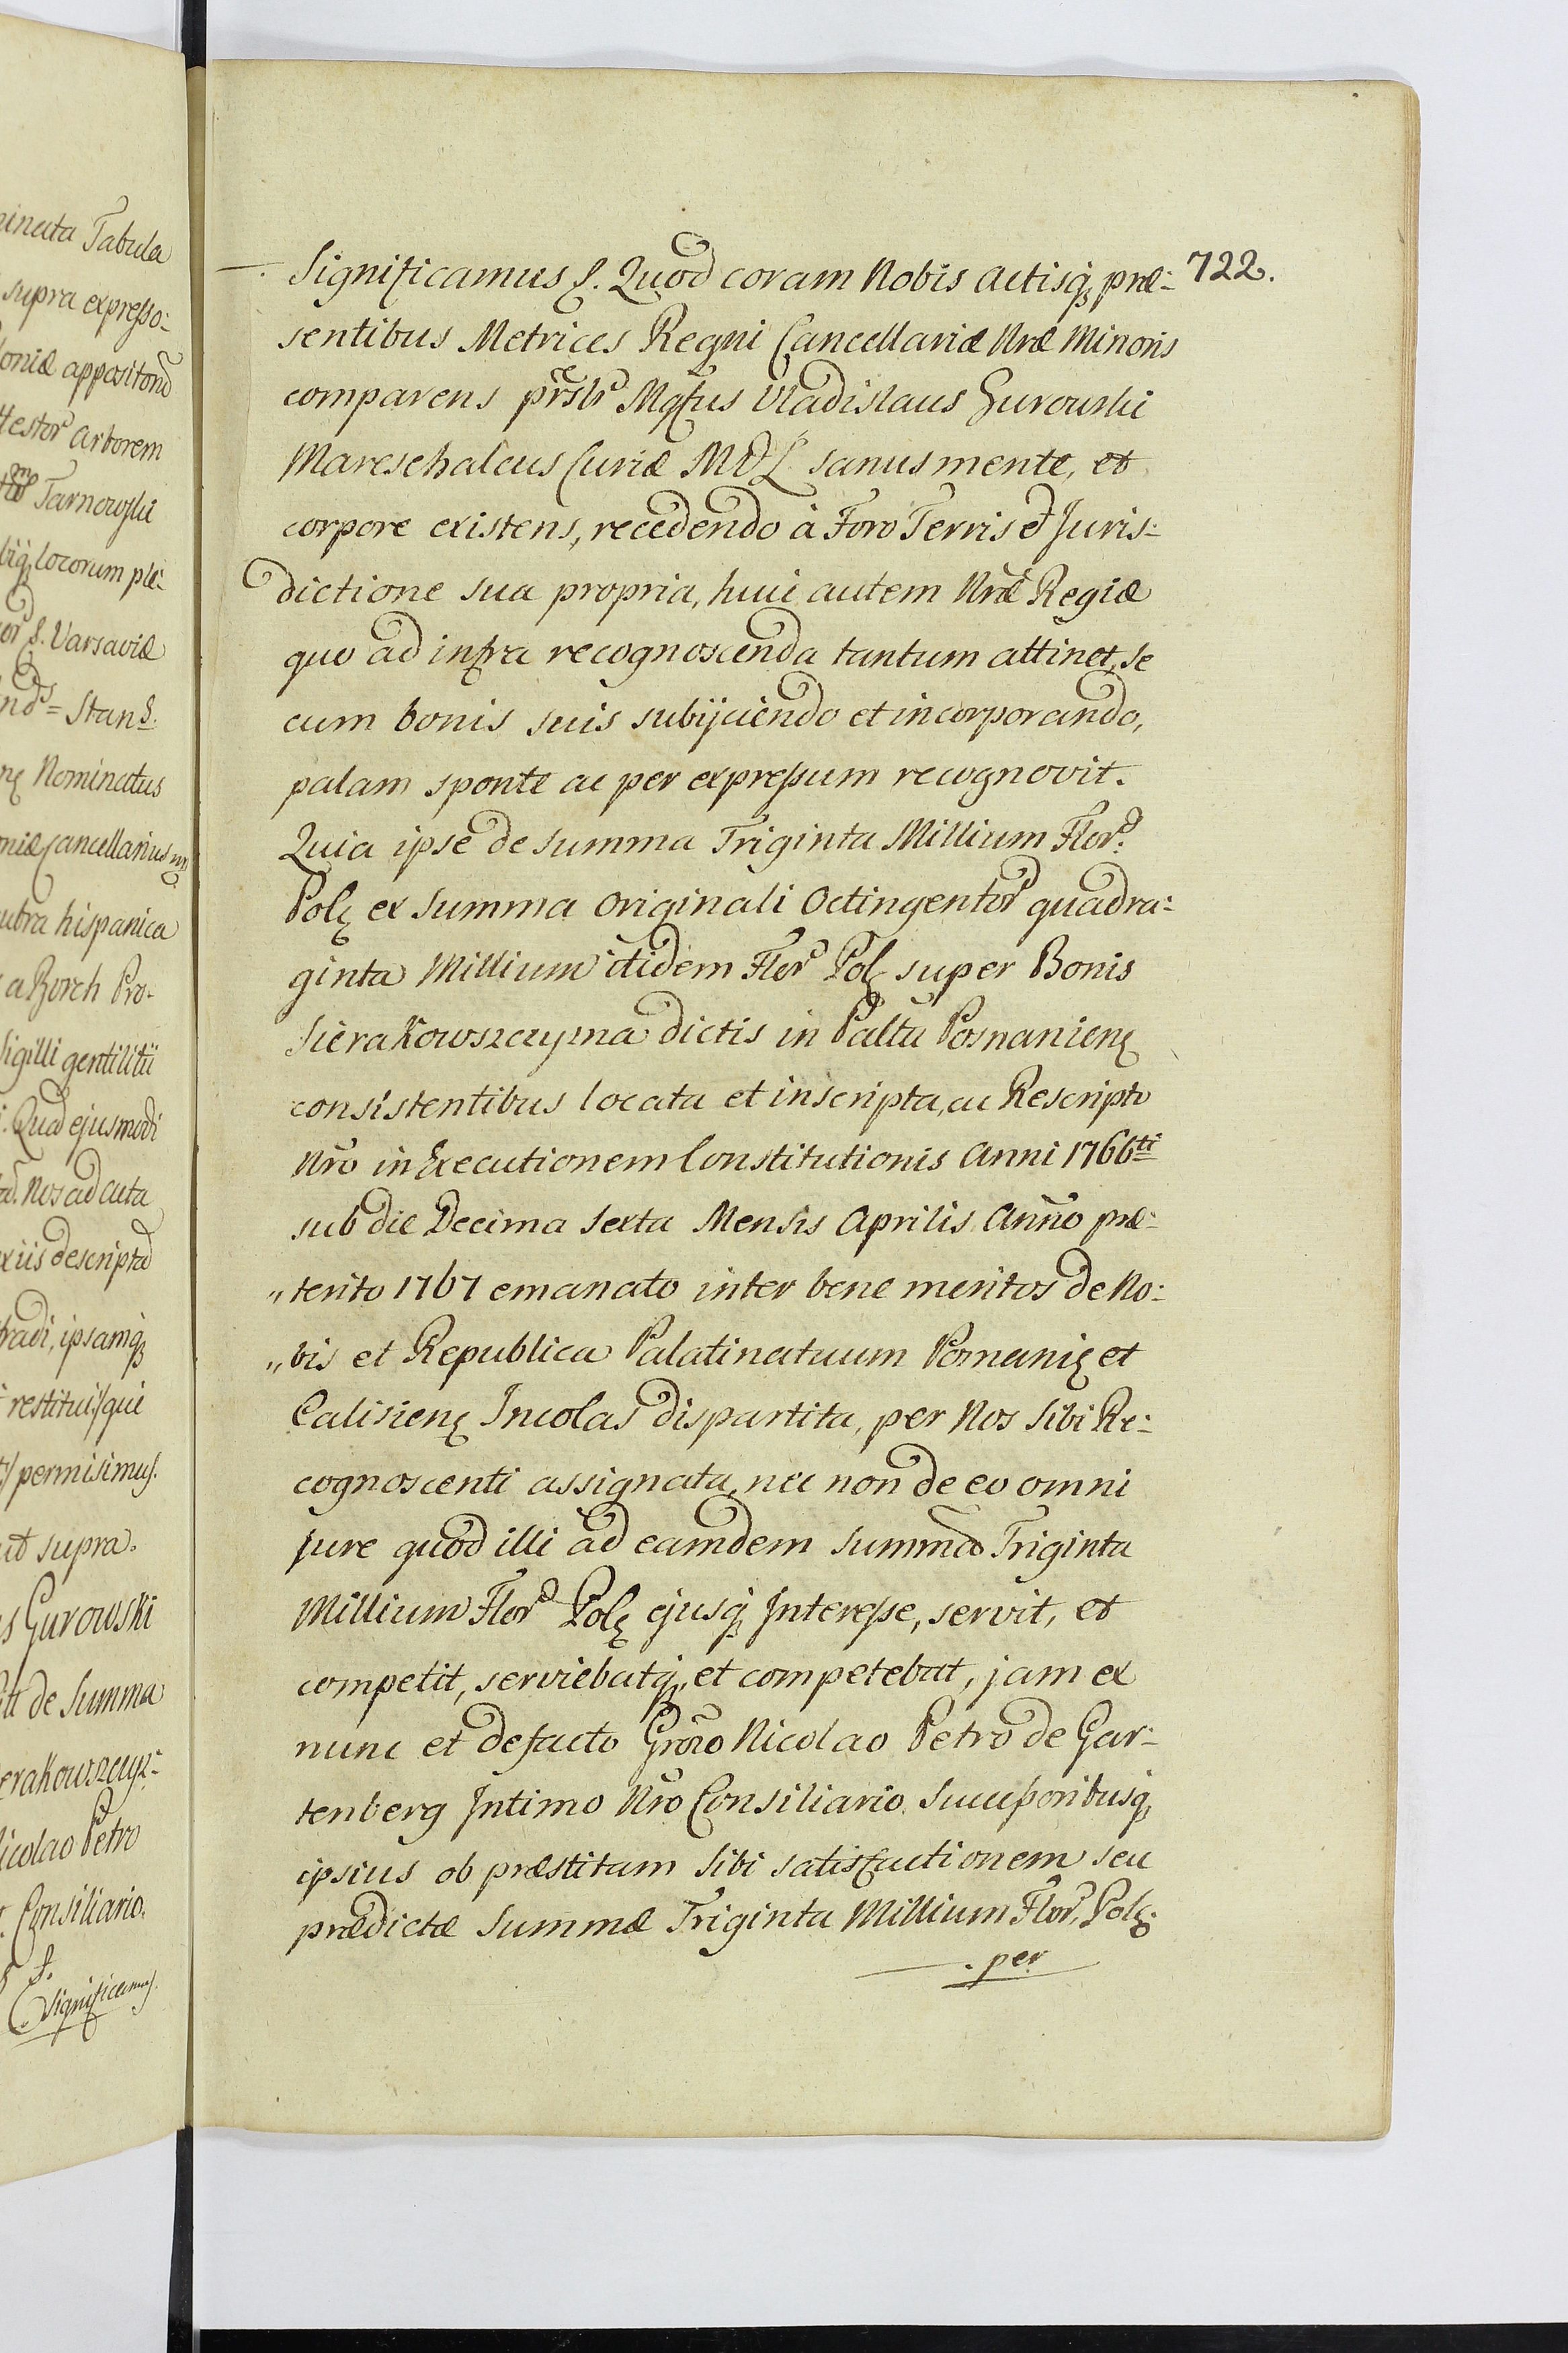 inata Tabula
supra expresso-
oniæ appositorũ
ttestor arborem
Tarnowski
biq̨ locorum ple-
S. Varsaviæ
Stans.
Nominatus
niæ Cancellarius
utra hispanica
a Borch Pro-
Sigilli gentilitii
Quod ejusmodi
Nos ad acta
xiis descriptã
tradi, ipsamq̨
restitui/que
permisimus.
ut supra.
s Gurowski
de Summa
erakowszczyz-
icolao Petro
Consiliario.
Significamus.
722.
Significamus S. Quod coram Nobis Actisq̨ præ-
sentibus Metrices Regni Cancellariæ Nræ Minoris
comparens prslr Mgfcus Vladislaus Gurowski
Mareschalcus Curiæ M D L sanus mente, et
corpore existens, recedendo à Foro Terris et Juris-
dictione sua propria, huic autem Nræ Regiæ
quo ad infra recognoscenda tantum attinet, se
cum bonis suis subijciendo et incorporando,
palam sponte ac per expressum recognovit.
Quia ipse de summa Triginta Millium Flor.
Polę ex summa originali Octingentor quadra-
ginta Millium itidem Flor Polę super Bonis
Sierakowszczyzna dictis in Palttu Posnanienę
consistentibus locata et inscripta, ac Rescripto
Nro in Executionem Constitutionis Anni 1766ti
sub die Decima Sexta Mensis Aprilis Anno præ-
"terito 1767 emanato inter bene meritos de No-
"bis et Republica Palatinatuum Posnanię et
Calisienę Incolas dispartita, per Nos Sibi Re-
cognoscenti assignata, nec non de eo omni
jure quod illi ad eamdem summã Triginta
Millium Flor Polę ejusq̨ Interesse, servit, et
competit, serviebatq̨, et competebat, jam ex
nunc et de facto Groso Nicolao Petro de Gar-
tenberg Intimo Nro Consiliario Successoribusq̨
ipsius ob præstitam Sibi satisfactionem seu
prædictæ Summæ Triginta Millium Flor. Polę.
per